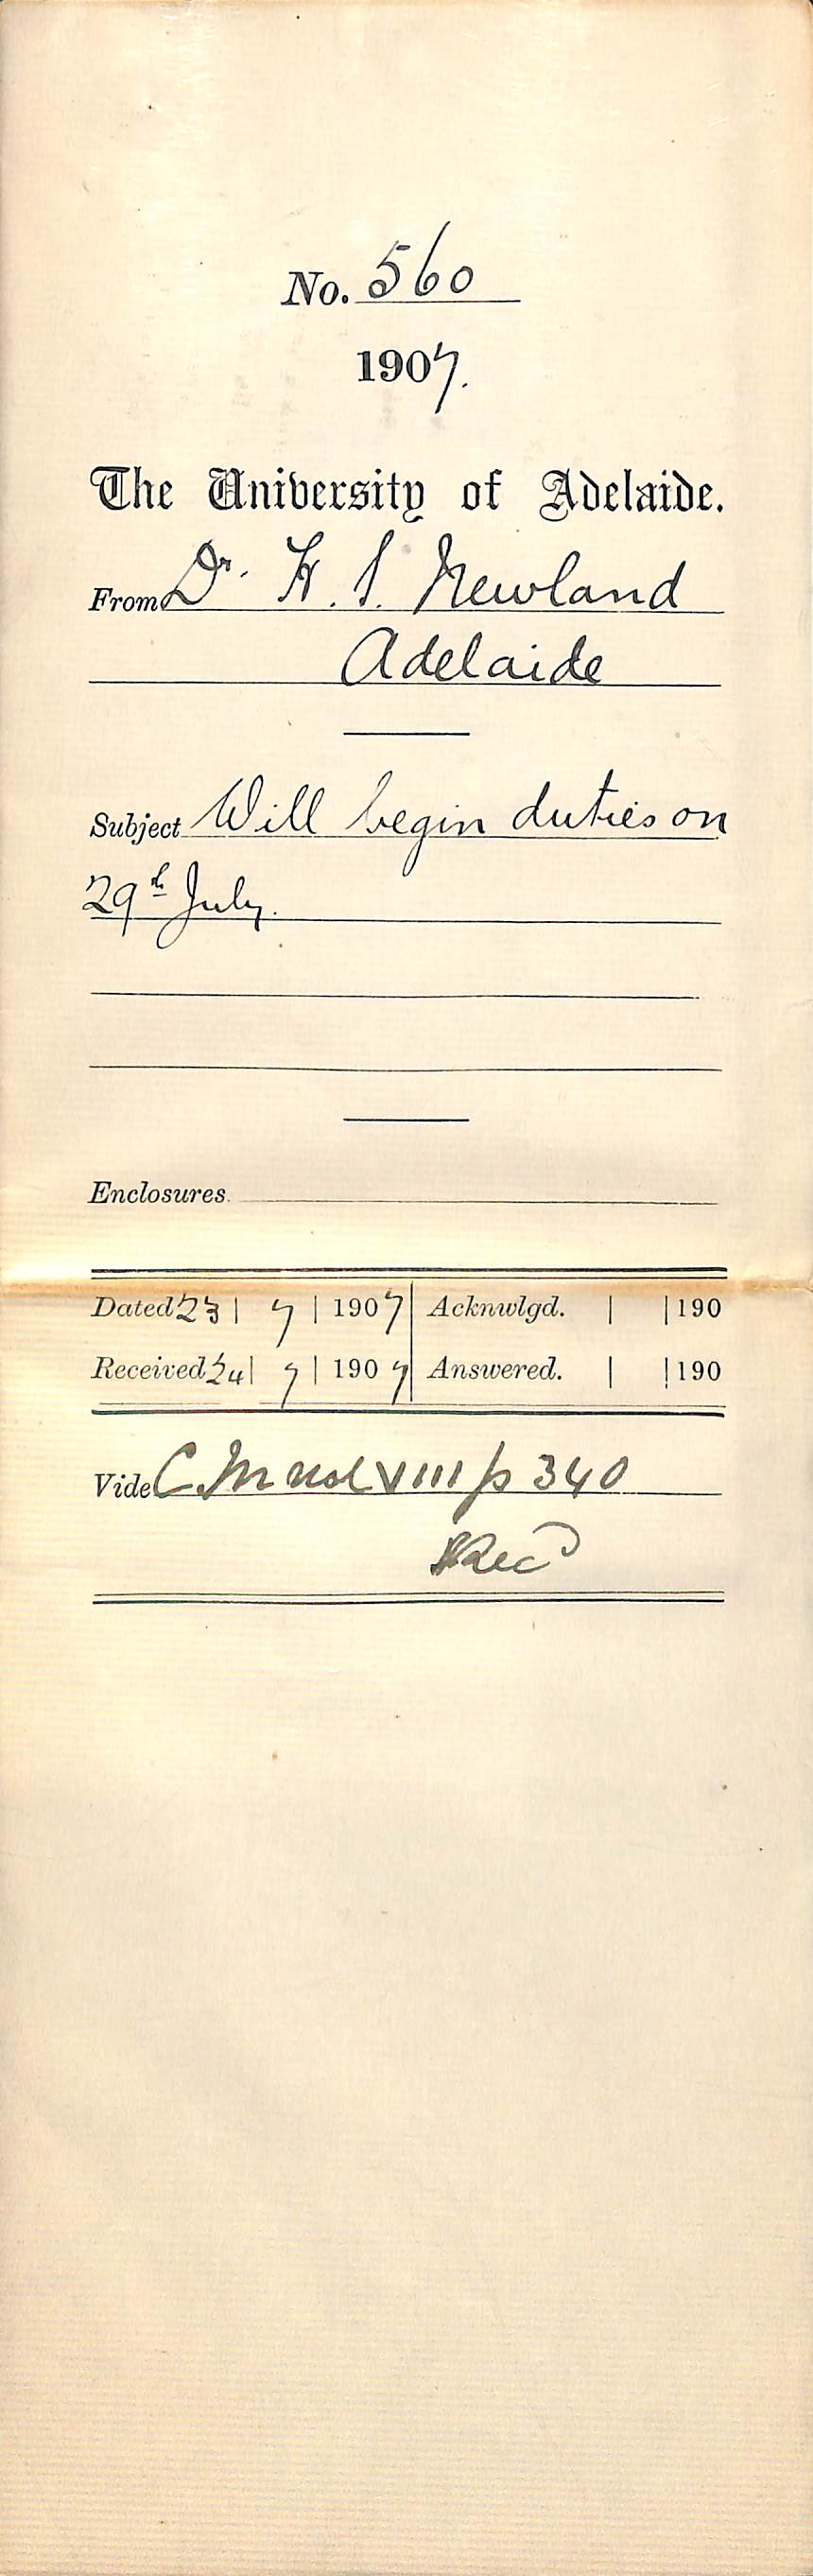 No. 560
1907.
The University of Adelaide.
From Dr. H. S. Newland
Adelaide
Subject Will begin duties on
29th July.
Enclosures
Dated 23 | 7 | 1907 | Acknwlgd. | | 190
Received 24 | 7 | 1907 | Answered. | | 190
Vide C M vol VIII p 340
Recd